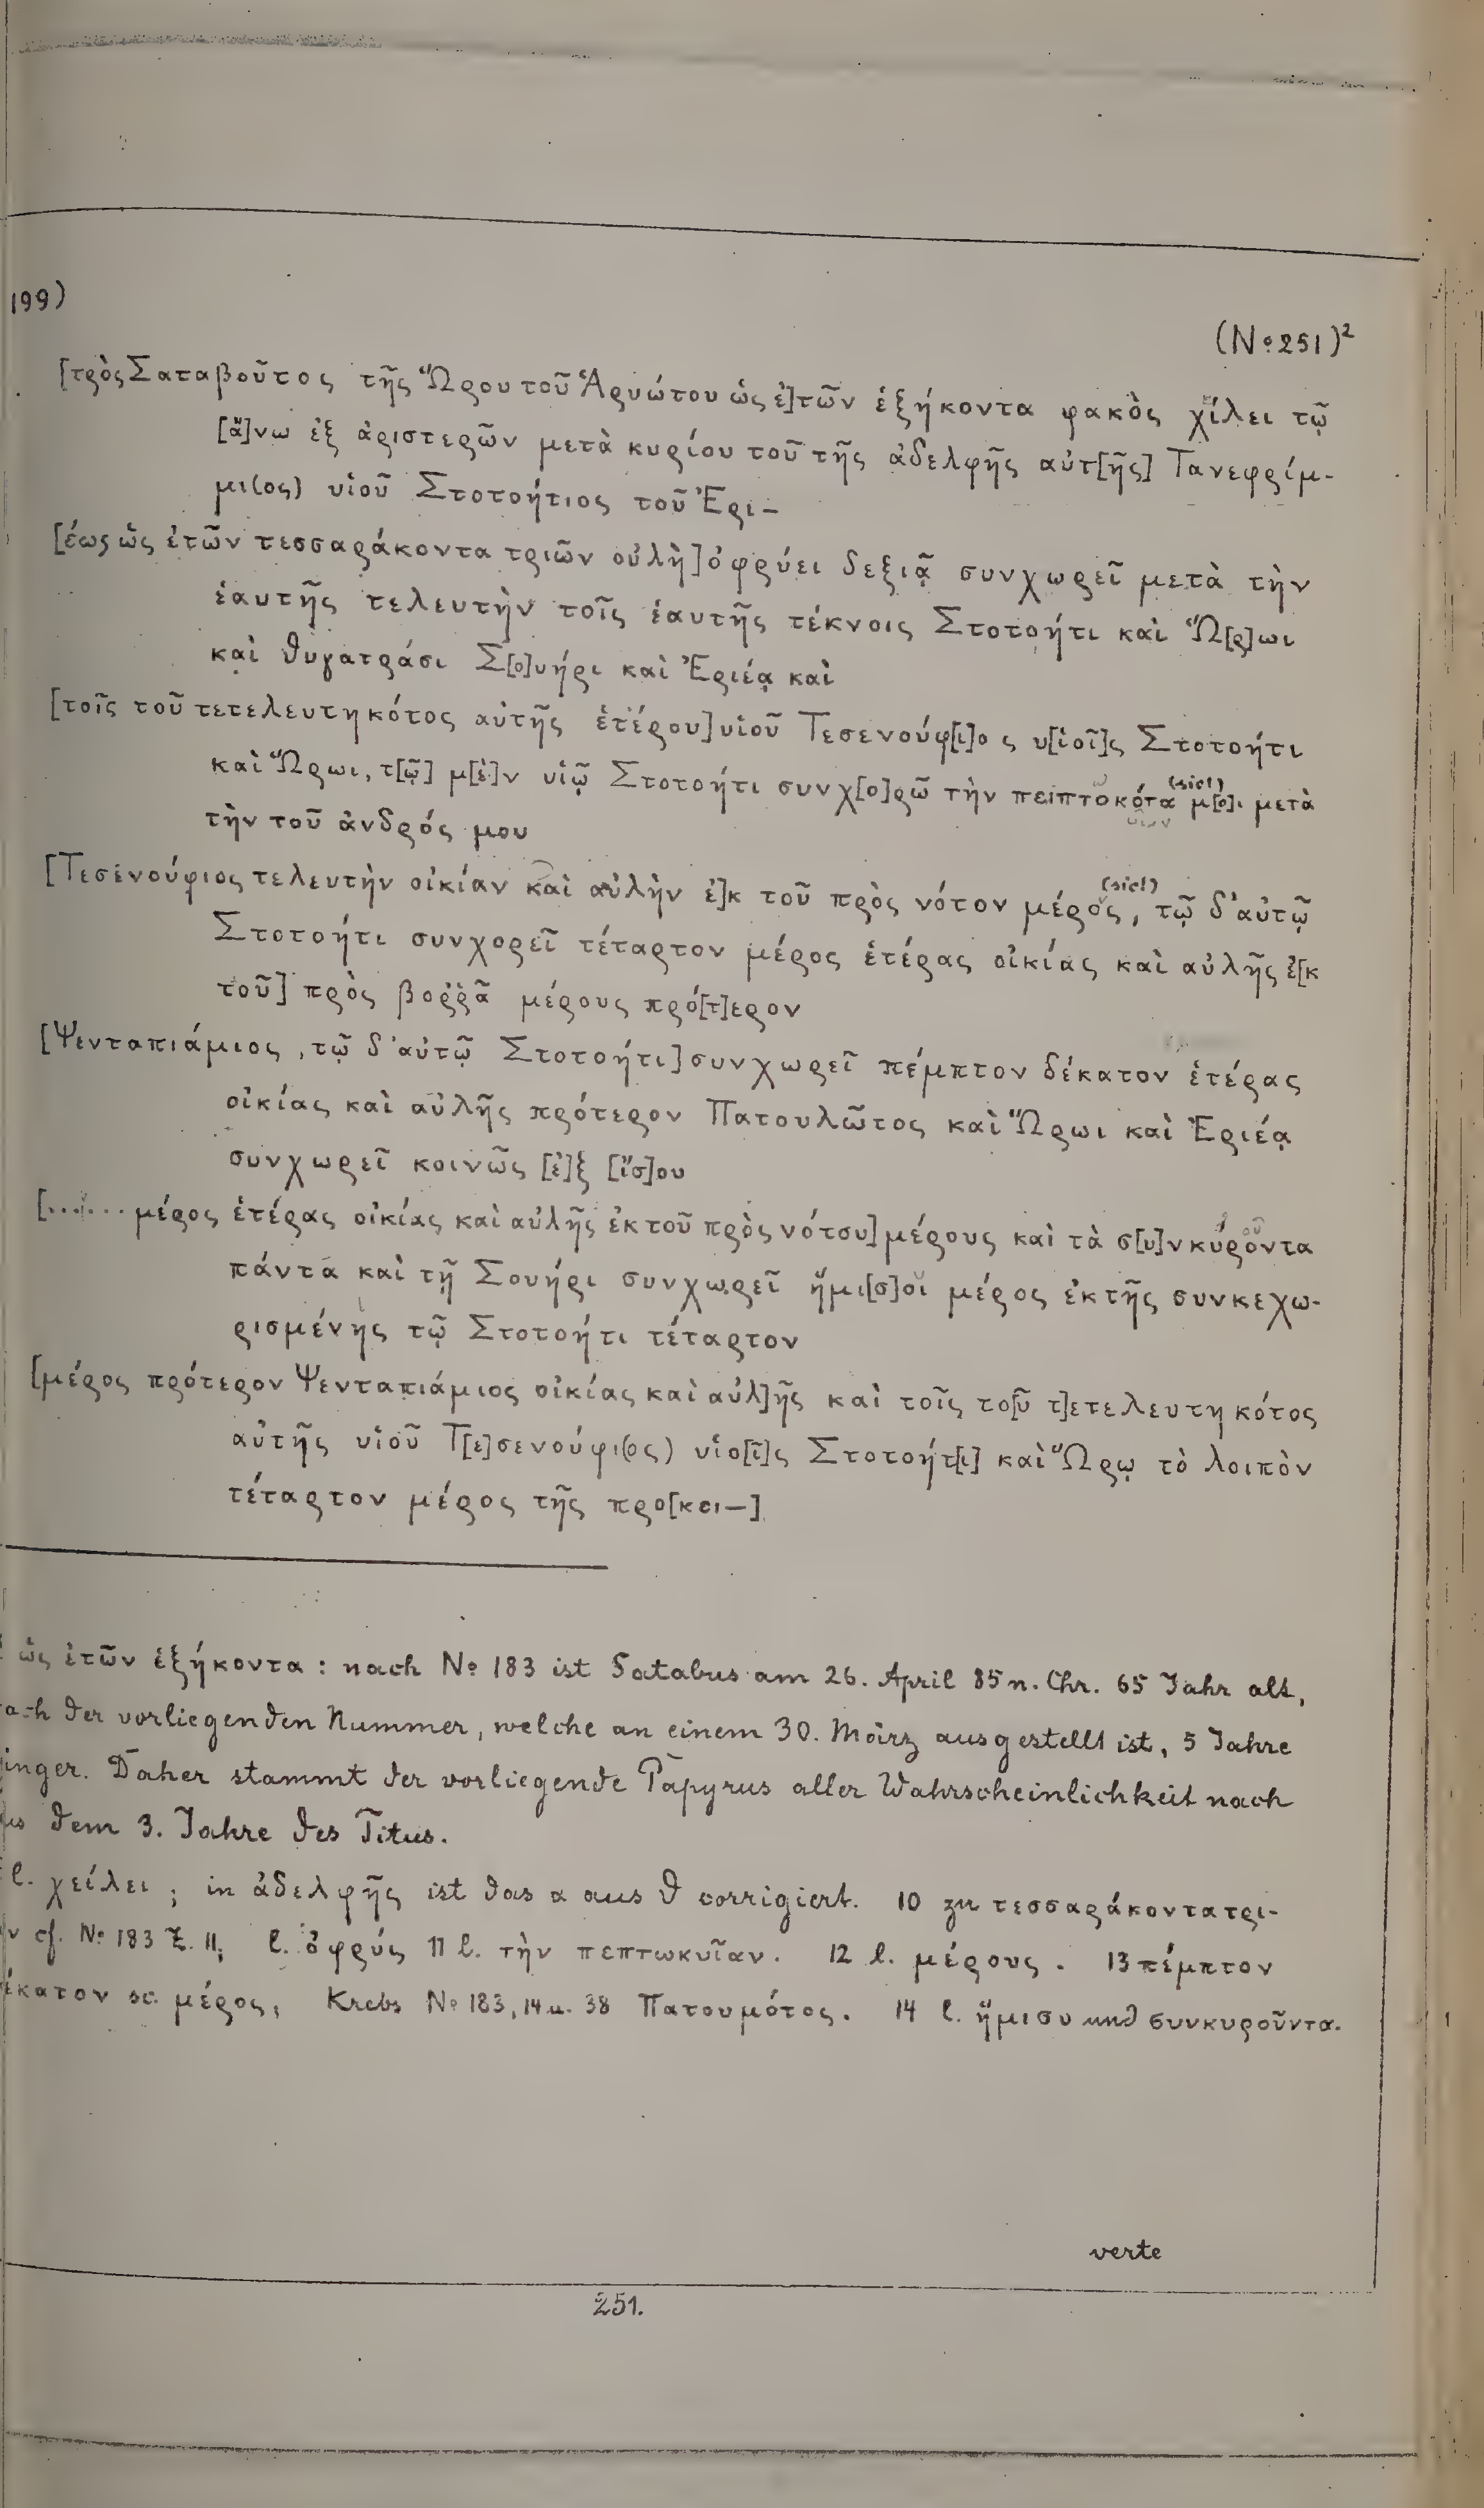 199)
(No. 251)²
[τρὸς Σαταβοῦτος τῆς Ὥρου τοῦ Ἁρυώτου ὡς ἐ]τῶν ἑξήκοντα φακὸς χίλει τῷ
[ἄ]νω ἐξ ἀριστερῶν μετὰ κυρίου τοῦ τῆς ἀδελφῆς αὐτ[ῆς] Τανεφρίμ-
μι(ος) υἱοῦ Στοτοήτιος τοῦ Ἐρι-
[έως ὡς ἐτῶν τεσσαράκοντα τριῶν οὐλὴ] ὀφρύει δεξιᾷ συνχωρεῖ μετὰ τὴν
ἑαυτῆς τελευτὴν τοῖς ἑαυτῆς τέκνοις Στοτοήτι καὶ Ὥ[ρ]ωι
καὶ θυγατράσι Σ[ο]υήρι καὶ Ἐριέᾳ καὶ
[τοῖς τοῦ τετελευτηκότος αὐτῆς ἑτέρου] υἱοῦ Τεσενούφ[ι]ος υ[ἱοῖ]ς Στοτοήτι
καὶ Ὥρωι, τ[ῷ] μ[ὲ]ν υἱῷ Στοτοήτι συνχ[ο]ρῶ τὴν πειπτοκότα (sic!) μ[ο]ι μετὰ
τὴν τοῦ ἀνδρός μου
[Τεσενούφιος τελευτὴν οἰκίαν καὶ αὐλὴν ἐ]κ τοῦ πρὸς νότον μέρος (sic!), τῷ δ'αὐτῷ
Στοτοήτι συνχορεῖ τέταρτον μέρος ἑτέρας οἰκίας καὶ αὐλῆς ἐ[κ
τοῦ] πρὸς βορρᾶ μέρους πρό[τ]ερον
[Ψενταπιάμιος, τῷ δ'αὐτῷ Στοτοήτι] συνχωρεῖ πέμπτον δέκατον ἑτέρας
οἰκίας καὶ αὐλῆς πρότερον Πατουλῶτος καὶ Ὥρωι καὶ Ἐριέᾳ
συνχωρεῖ κοινῶς [ἐ]ξ [ἴσ]ου
[....... μέρος ἑτέρας οἰκίας καὶ αὐλῆς ἐκ τοῦ πρὸς νότου] μέρους καὶ τὰ σ[υ]νκύροντα
πάντα καὶ τῇ Σουήρι συνχωρεῖ ἥμι[σ]οι μέρος ἐκ τῆς συνκεχω-
ρισμένης τῷ Στοτοήτι τέταρτον
[μέρος πρότερον Ψενταπιάμιος οἰκίας καὶ αὐλ]ῆς καὶ τοῖς το[ῦ τ]ετελευτηκότος
αὐτῆς υἱοῦ Τ[ε]σενούφι(ος) υἱο[ῖ]ς Στοτοήτ[ι] καὶ Ὥρῳ τὸ λοιπὸν
τέταρτον μέρος τῆς προ[κει-]
ὡς ἐτῶν ἑξήκοντα: nach No 183 ist Satabus am 26. April 85 n. Chr. 65 Jahr alt,
der vorliegenden Nummer, welche an einem 30. März ausgestellt ist, 5 Jahre
inger. Daher stammt der vorliegende Papyrus aller Wahrscheinlichkeit nach
dem 3. Jahre des Titus.
l. χείλει; in ἀδελφῆς ist das α aus θ corrigiert. 10 zu τεσσαράκοντα τρι-
cf. No 183 Z. 11; l. ὀφρύς 11 l. τὴν πεπτωκυῖαν. 12 l. μέρους. 13 πέμπτον
έκατον sc. μέρος, Krebs No 183, 14 u. 38 Πατουμότος. 14 l. ἥμισυ und συνκυροῦντα.
verte
251.